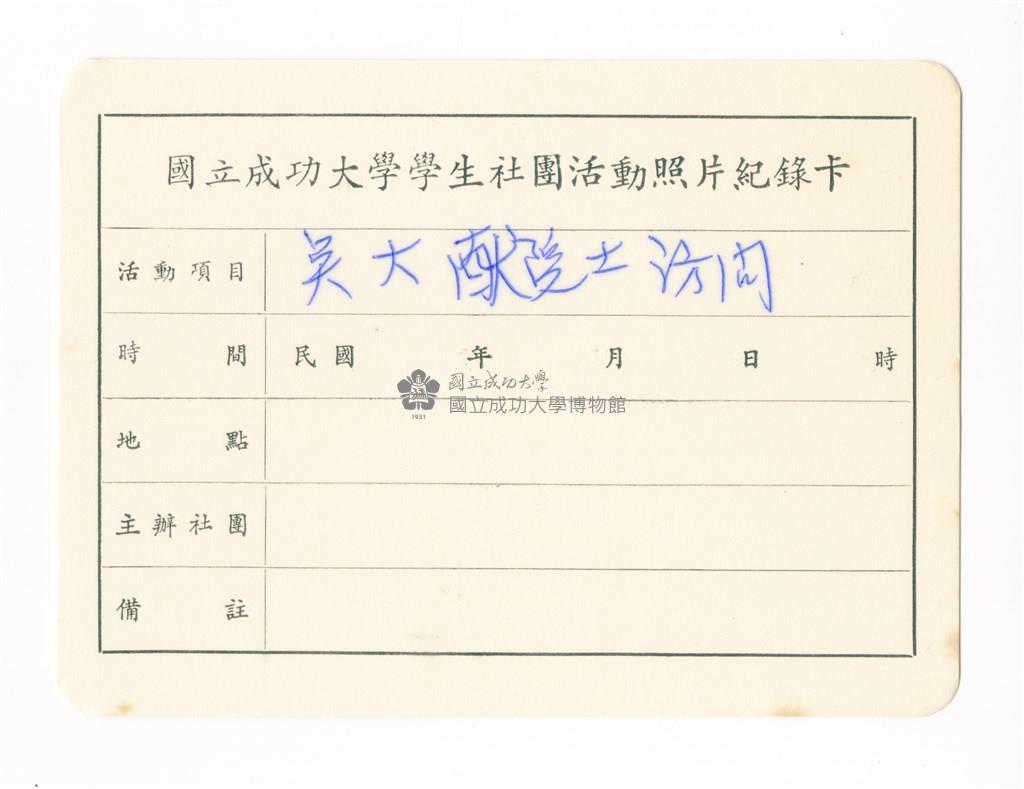 國立成功大學學生社團活動照片紀錄卡
活動項目 吳大猷院士訪问
時間 民國 年 月 日 時
國立成功大學
國立成功大學博物館
1931
地點
主辦社團
備註